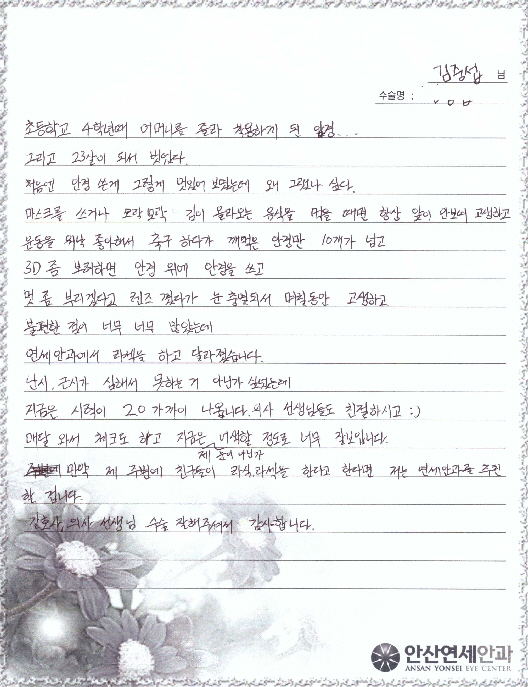 김중섭 님
수술명 :
초등학교 4학년때 어머니를 졸라 착용하게 된 안경...
그리고 23살이 되서 벗었다.
처음엔 안경 쓴게 그렇게 멋있어 보였는데 왜 그랬나 싶다.
마스크를 쓰거나 모락모락 김이 올라오는 음식을 먹을 때면 항상 앞이 안보여 고생하고
운동을 워낙 좋아해서 축구 하다가 깨먹은 안경만 10개가 넘고
3D 좀 보려하면 안경 위에 안경을 쓰고
멋 좀 부리겠다고 렌즈 꼈다가 눈 충혈되서 며칠동안 고생하고
불편한 점이 너무 너무 많았는데
연세안과에서 라섹을 하고 달라졌습니다.
난시, 근시가 심해서 못하는 거 아닌가 싶었는데
지금은 시력이 2.0 가까이 나옵니다. 의사 선생님들도 친절하시고 :)
매달 와서 체크도 하고 지금은 어색할 정도로 너무 잘보입니다.
제 눈이 아닌가
만약 제 주변에 친구들이 라식,라섹을 한다고 한다면 저는 연세안과를 추천
할 겁니다.
간호사, 의사 선생님 수술 잘해주셔서 감사합니다.
안산연세안과
ANSAN YONSEI EYE CENTER